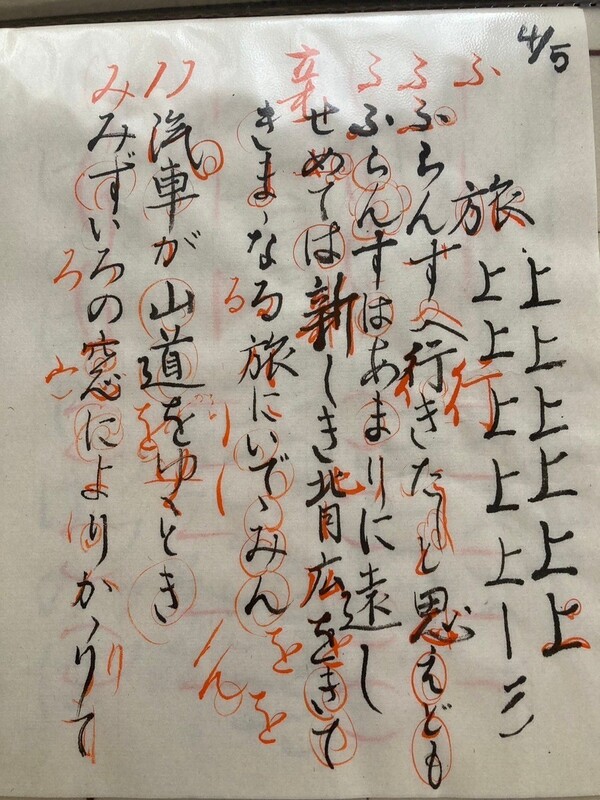 4/5
旅
上上上上上上
上上上上上
ふらんすへ行きたしと思えども
ふらんすはあまりに遠し
せめては新しき背広をきて
きまゝなる旅にいでゝみん
汽車が山道をゆくとき
みずいろの窓によりかゝりて
ふ
ふ
ふ
行
る
み
ろ
を
を
ん
り